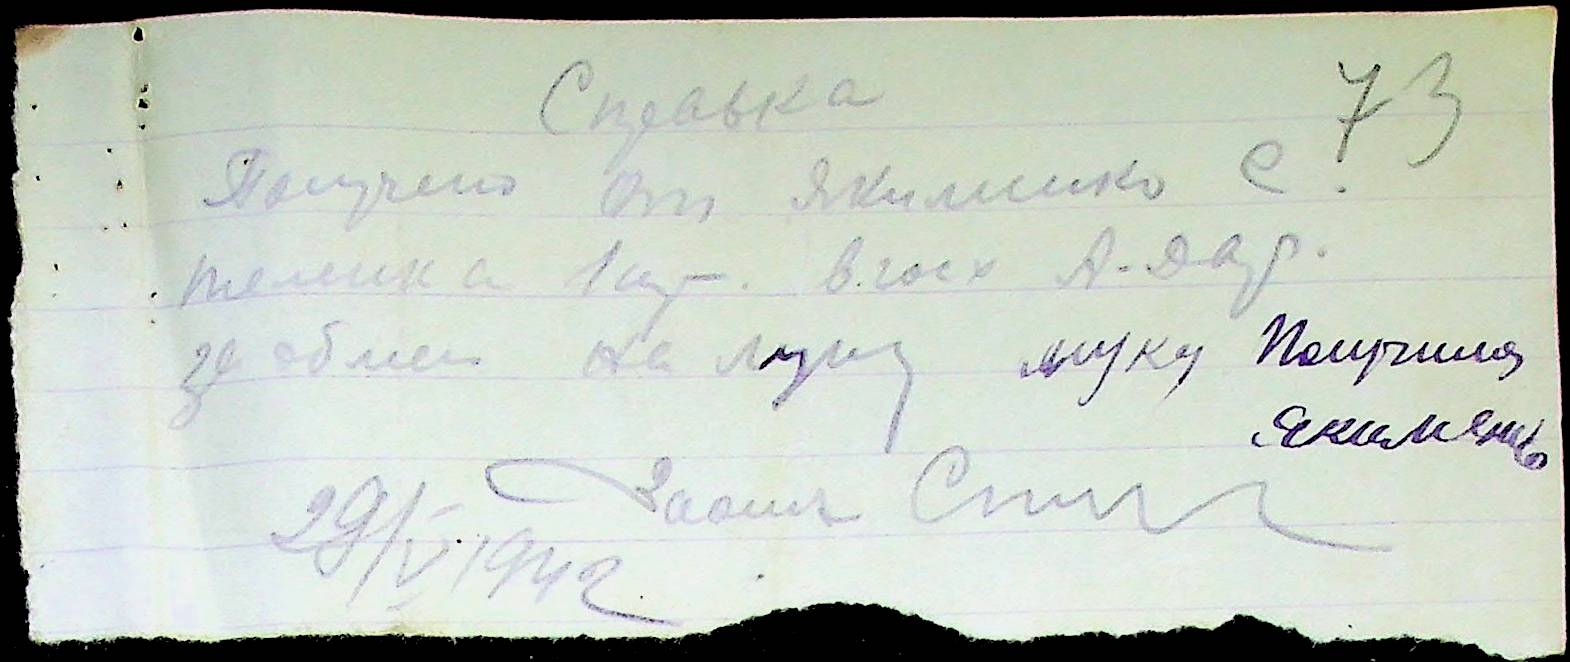 Справка 73
Получено от Якименко С.
теленка 1 шт. в госх А-Даир.
за обмен на муку муку Получила
Якимень
29/V 1942